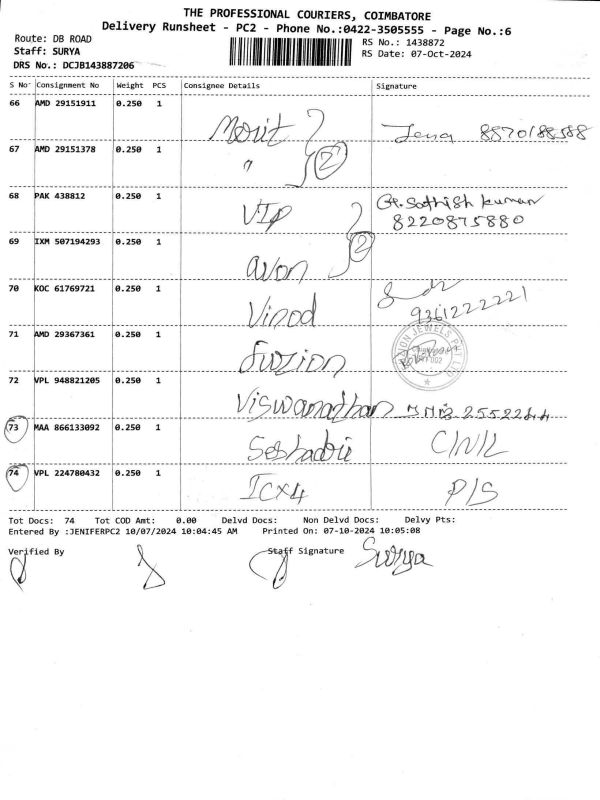 THE PROFESSIONAL COURIERS, COIMBATORE
Delivery Runsheet - PC2 - Phone No.:0422-3505555 - Page No.:6
Route: DB ROAD
RS No.: 1438872
Staff: SURYA
RS Date: 07-Oct-2024
DRS No.: DCJB143887206
S No Consignment No Weight PCS Consignee Details Signature
66 AMD 29151911 0.250 1 Merit Jena 8870188588
67 AMD 29151378 0.250 1 " 2
68 PAK 438812 0.250 1 VIP G. Sathish kumar
8220875880
69 IXM 507194293 0.250 1 avon 2
70 KOC 61769721 0.250 1 Vinod
9361222221
71 AMD 29367361 0.250 1 fuzion
JEWELS PVT LTD
72 VPL 948821205 0.250 1 Viswanathan 2552244
73 MAA 866133092 0.250 1 Seshadri C/N/L
74 VPL 224780432 0.250 1 ICX4 P/S
Tot Docs: 74 Tot COD Amt: 0.00 Delvd Docs: Non Delvd Docs: Delvy Pts:
Entered By :JENIFERPC2 10/07/2024 10:04:45 AM Printed On: 07-10-2024 10:05:08
Verified By Staff Signature Surya